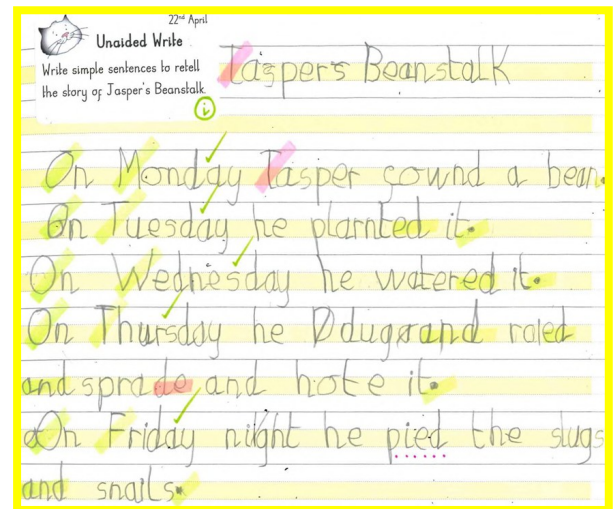 22nd April
Unaided Write
Write simple sentences to retell
the story of Jasper's Beanstalk.
Jasper's Beanstalk
On Monday Jasper fownd a bean.
On Tuesday he plarnted it.
On Wednesday he watered it.
On Thursday he and raled
and sprade and hote it.
On Friday night he pied the slugs
and snails.